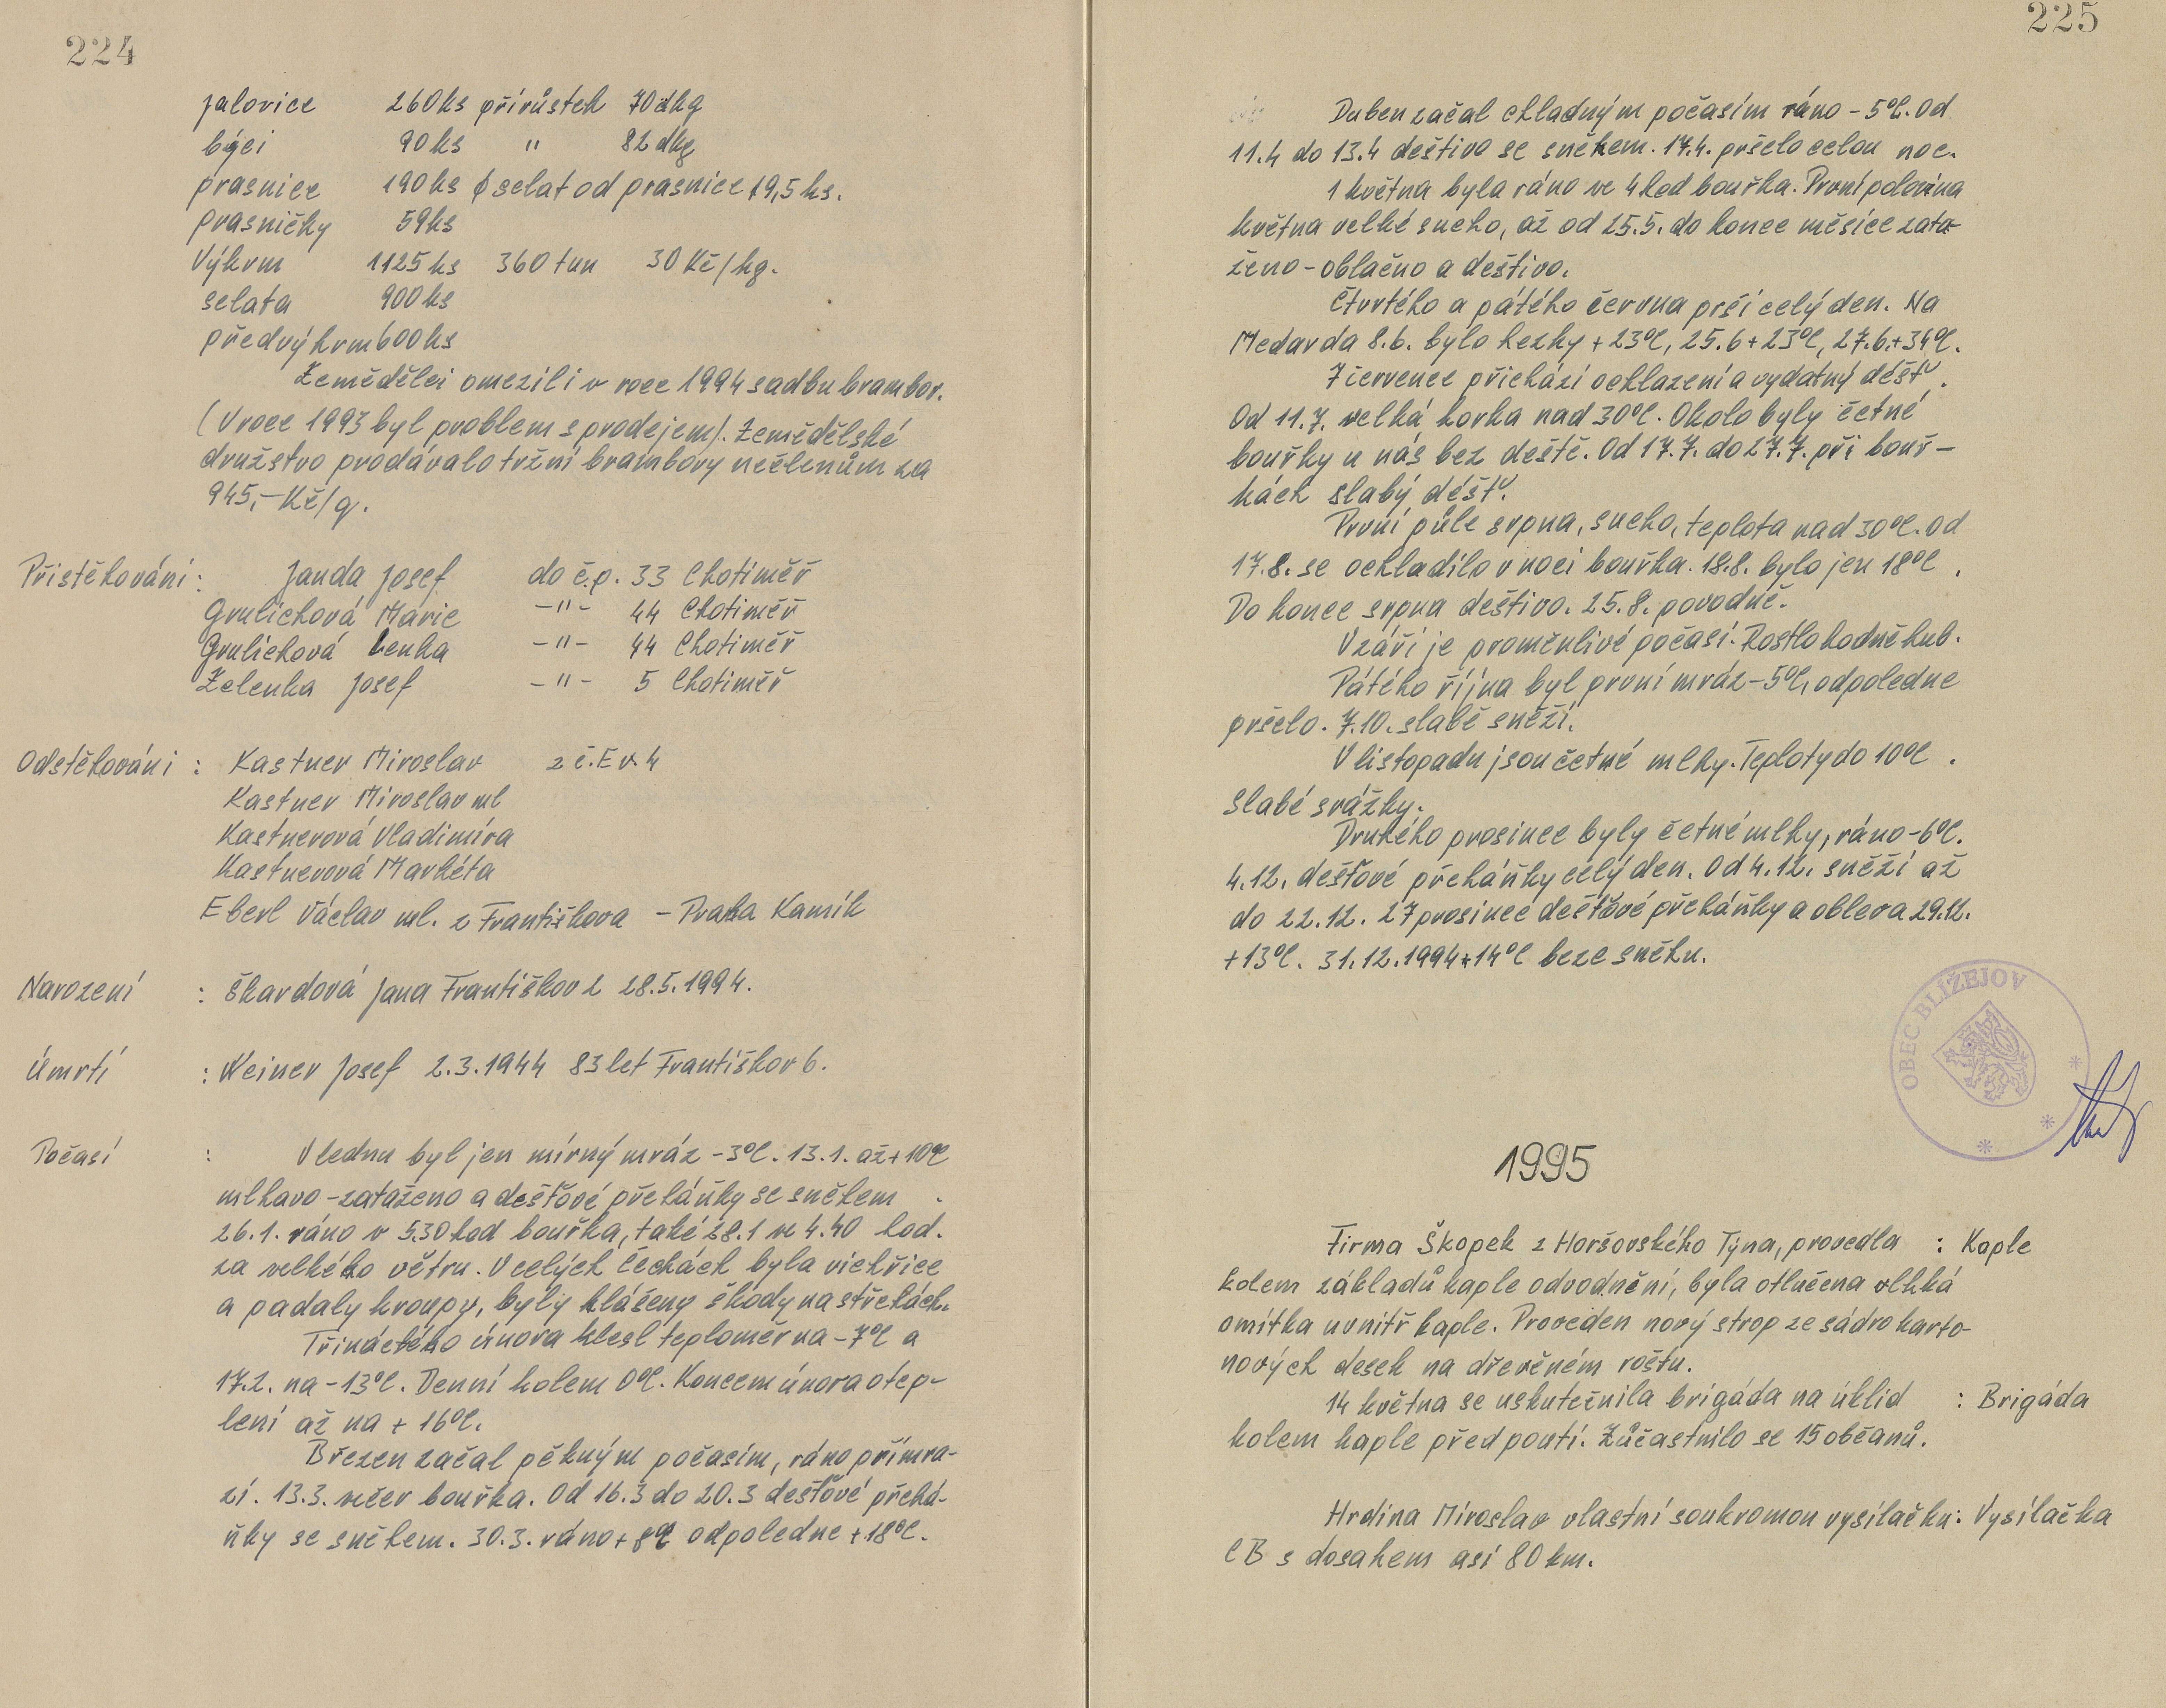 224
jalovice 260ks přírůstek 70dkg
býci 90ks " 82dkg
prasnice 190ks ϕ selat od prasnice 19,5ks.
prasničky 59ks
Výkrm 1125ks 360tun 30Kč/kg.
selata 900ks
předvýkrm 600ks
Zemědělci omezili v roce 1994 sadbu brambor.
(V roce 1993 byl problem s prodejem). Zemědělské
družstvo prodávalo tržní brambory nečlenům za
945,-Kč/q.
Přistěhování: Janda Josef do č.p. 33 Chotiměř
Grulichová Marie -"- 44 Chotiměř
Grulichová Lenka -"- 44 Chotiměř
Zelenka Josef -"- 5 Chotiměř
Odstěhováni : Kastner Miroslav z č.Ev.4
Kastner Miroslav ml
Kastnerová Vladimíra
Kastnerová Markéta
Eberl Václav ml. z Františkova - Praha Kamík
Narození : Škardová Jana Františkov 2 28.5.1994.
Úmrtí : Weiner Josef 2.3.1944 83let Františkov 6.
Počasí : V lednu byl jen mírný mráz -3°C. 13.1. až +10°C
mlhavo-zataženo a dešťové přeháňky se sněhem.
26.1. ráno v 5.30hod bouřka, také 28.1 ve 4.40 hod.
za velkého větru. V celých Čechách byla vichřice
a padaly kroupy, byly hlášeny škody na střechách.
Třináctého února klesl teploměr na -7°C a
17.2. na -13°C. Denní kolem 0°C. Koncem února otep-
lení až na + 16°C.
Březen začal pěkným počasím, ráno přímra-
zí. 13.3. večer bouřka. Od 16.3 do 20.3 dešťové přehá-
ňky se sněhem. 30.3. ráno +8°C odpoledne +18°C.
225
Duben začal chladným počasím ráno -5°C. Od
11.4 do 13.4 deštivo se sněhem. 17.4. pršelo celou noc.
1 května byla ráno ve 4hod bouřka. První polovina
května velké sucho, až od 25.5. do konce měsíce zata-
ženo-oblačno a deštivo.
Čtvrtého a pátého června prší celý den. Na
Medarda 8.6. bylo hezky +23°C, 25.6+23°C, 27.6.+34°C.
7 července přichází ochlazení a vydatný déšť.
Od 11.7. velká horka nad 30°C. Okolo byly četné
bouřky u nás bez deště. Od 17.7. do 27.7. při bouř-
kách slabý déšť.
První půle srpna, sucho, teplota nad 30°C. Od
17.8. se ochladilo v noci bouřka. 18.8. bylo jen 18°C.
Do konce srpna deštivo. 25.8. povodně.
V září je proměnlivé počasí. Rostlo hodně hub.
Pátého října byl první mráz -5°C, odpoledne
pršelo. 7.10. slabě sněží.
V listopadu jsou četné mlhy. Teploty do 10°C.
Slabé srážky.
Druhého prosince byly četné mlhy, ráno -6°C.
4.12. dešťové přeháňky celý den. Od 4.12. sněží až
do 22.12. 27 prosince dešťové přeháňky a obleva 29.12.
+13°C. 31.12.1994 +14°C beze sněhu.
OBEC BLÍŽEJOV
1995
Firma Škopek z Horšovského Týna, provedla : Kaple
kolem základů kaple odvodnění, byla otlučena vlhká
omítka uvnitř kaple. Proveden nový strop ze sádrokarto-
nových desek na dřevěném roštu.
14 května se uskutečnila brigáda na úklid : Brigáda
kolem kaple před poutí. Zůčastnilo se 15 občanů.
Hrdina Miroslav vlastní soukromou vysílačku: Vysílačka
CB s dosahem asi 80 km.